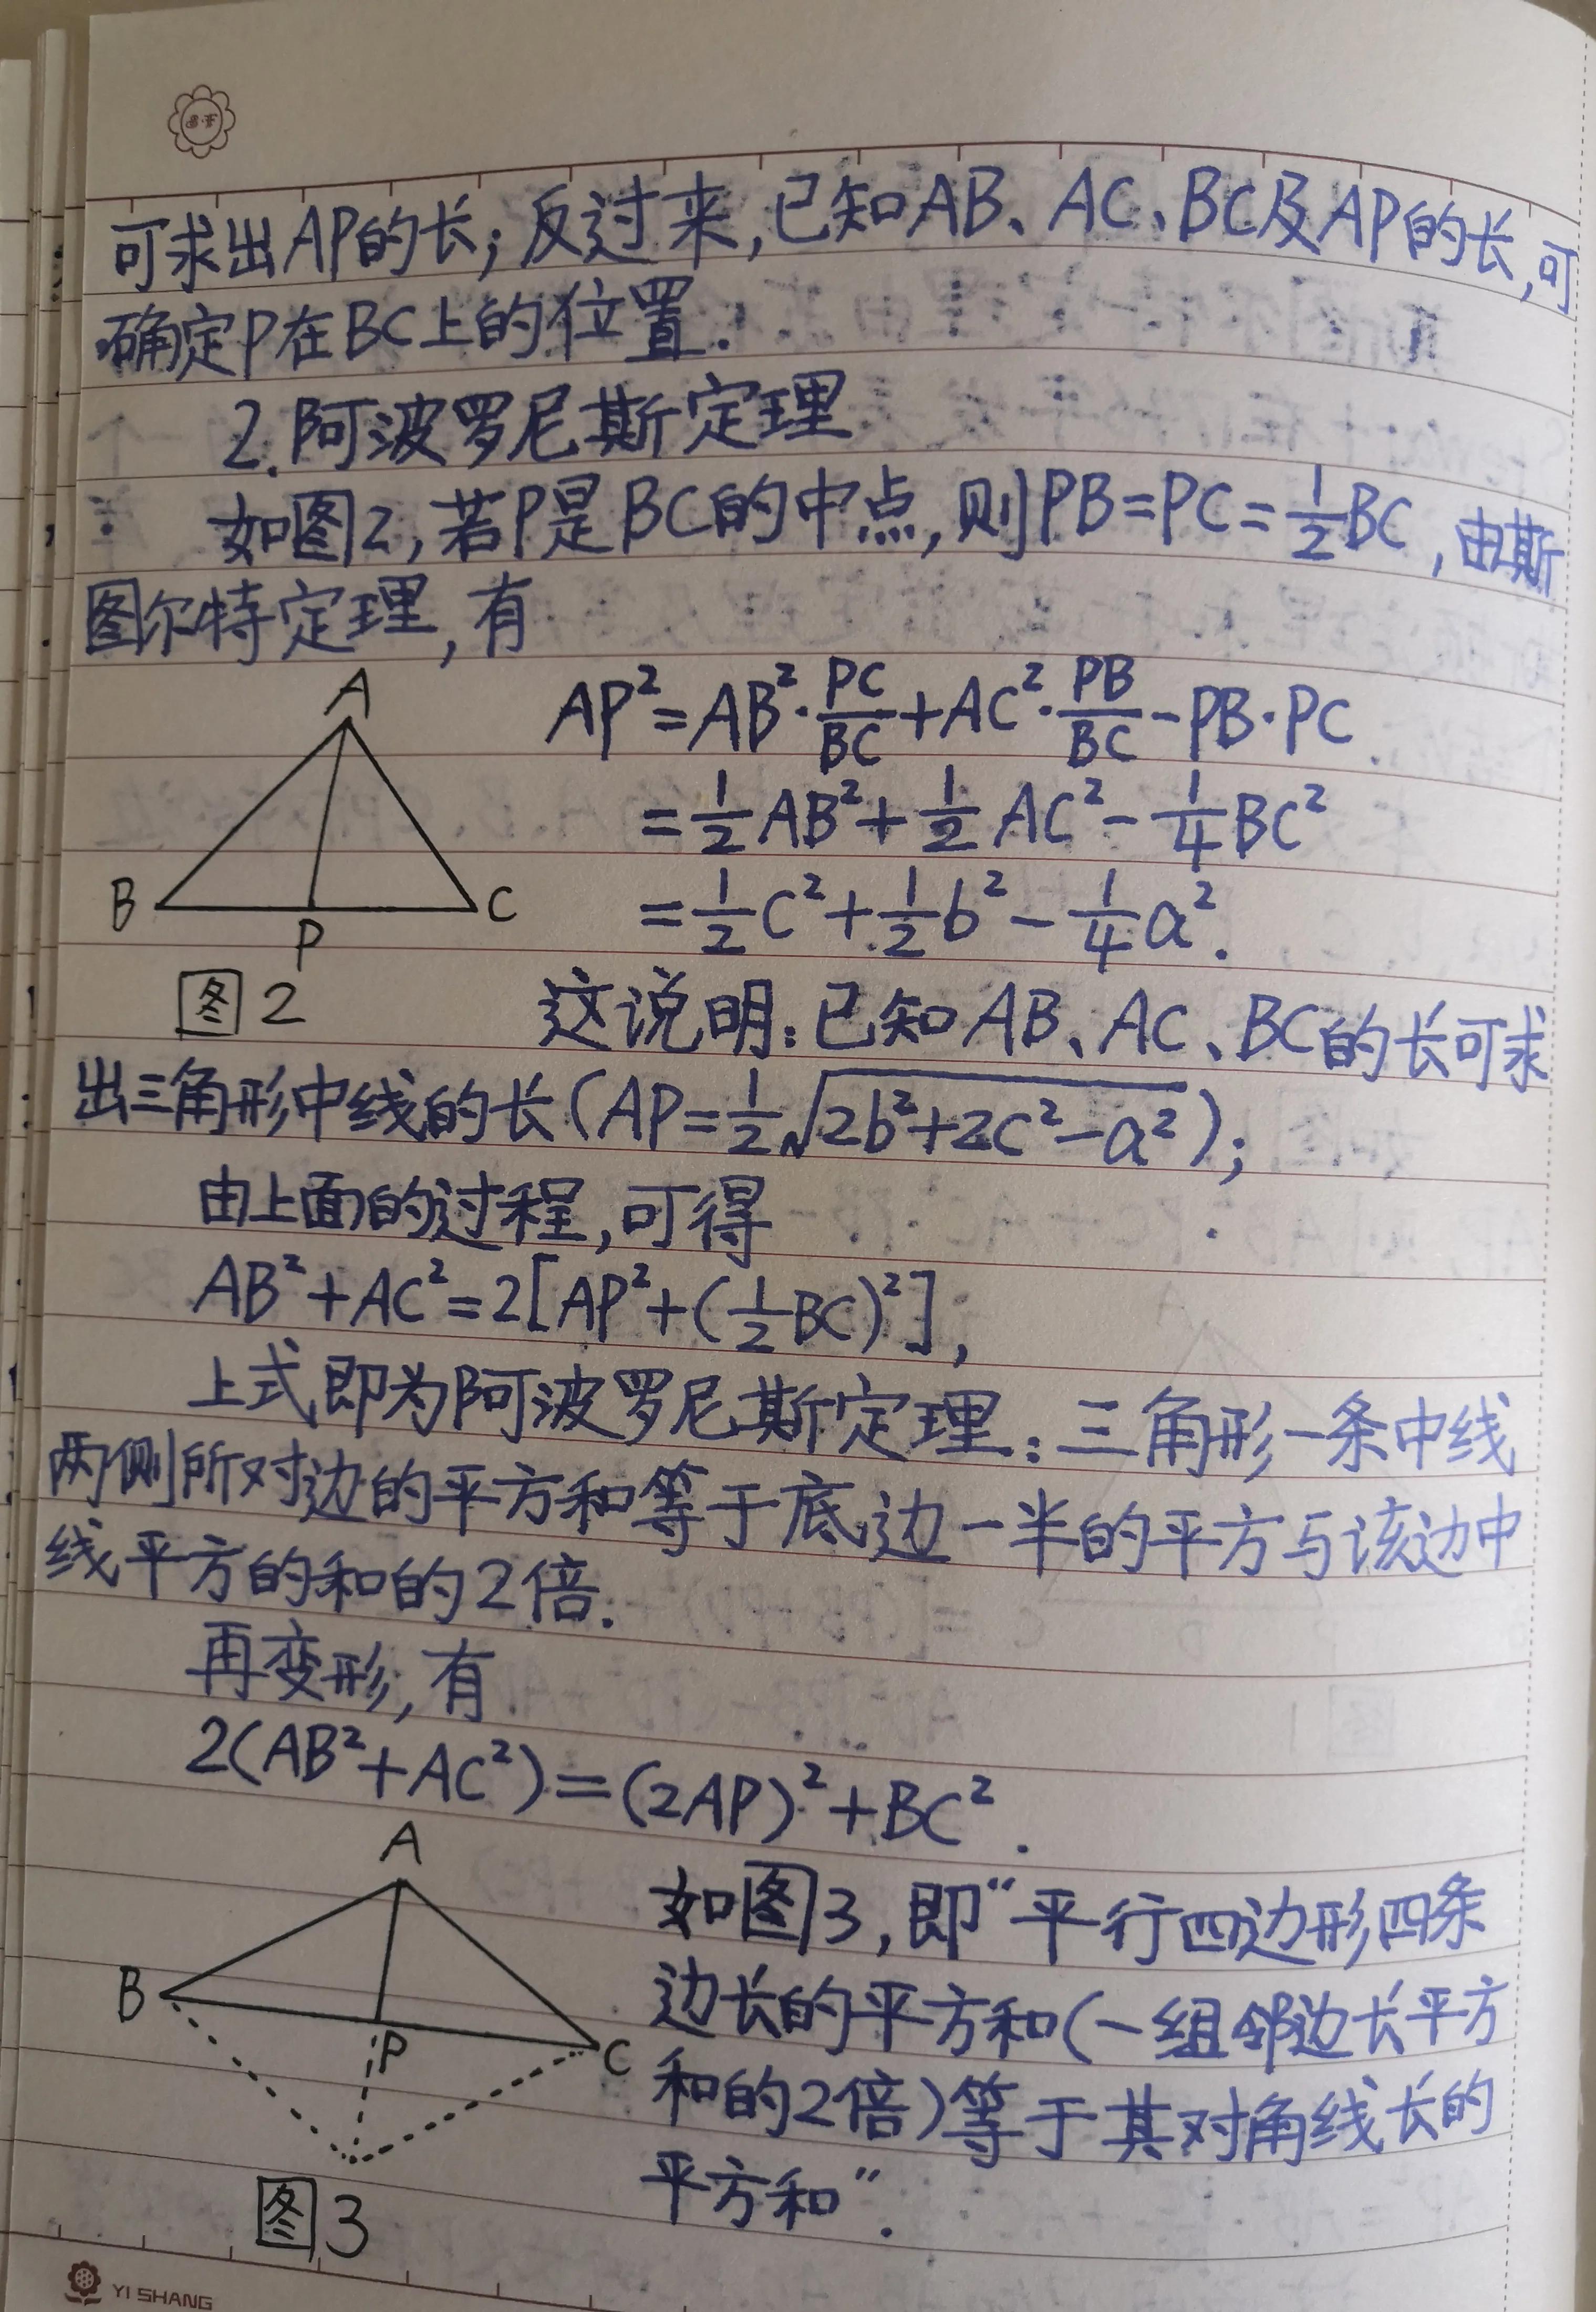 可求出AP的长;反过来,已知AB、AC、BC及AP的长,可
确定P在BC上的位置.
2.阿波罗尼斯定理
如图2,若P是BC的中点,则PB=PC=\frac{1}{2}BC,由斯
图尔特定理,有
A
B
P
C
图2
AP²=AB²·\frac{PC}{BC}+AC²·\frac{PB}{BC}-PB·PC
=\frac{1}{2}AB²+\frac{1}{2}AC²-\frac{1}{4}BC²
=\frac{1}{2}c²+\frac{1}{2}b²-\frac{1}{4}a².
这说明:已知AB、AC、BC的长可求
出三角形中线的长(AP=\frac{1}{2}\sqrt{2b²+2c²-a²});
由上面的过程,可得
AB²+AC²=2[AP²+(\frac{1}{2}BC)²],
上式即为阿波罗尼斯定理:三角形一条中线
两侧所对边的平方和等于底边一半的平方与该边中
线平方的和的2倍.
再变形,有
2(AB²+AC²)=(2AP)²+BC².
A
B
P
C
图3
如图3,即“平行四边形四条
边长的平方和(一组邻边长平方
和的2倍)等于其对角线长的
平方和”.
YI SHANG